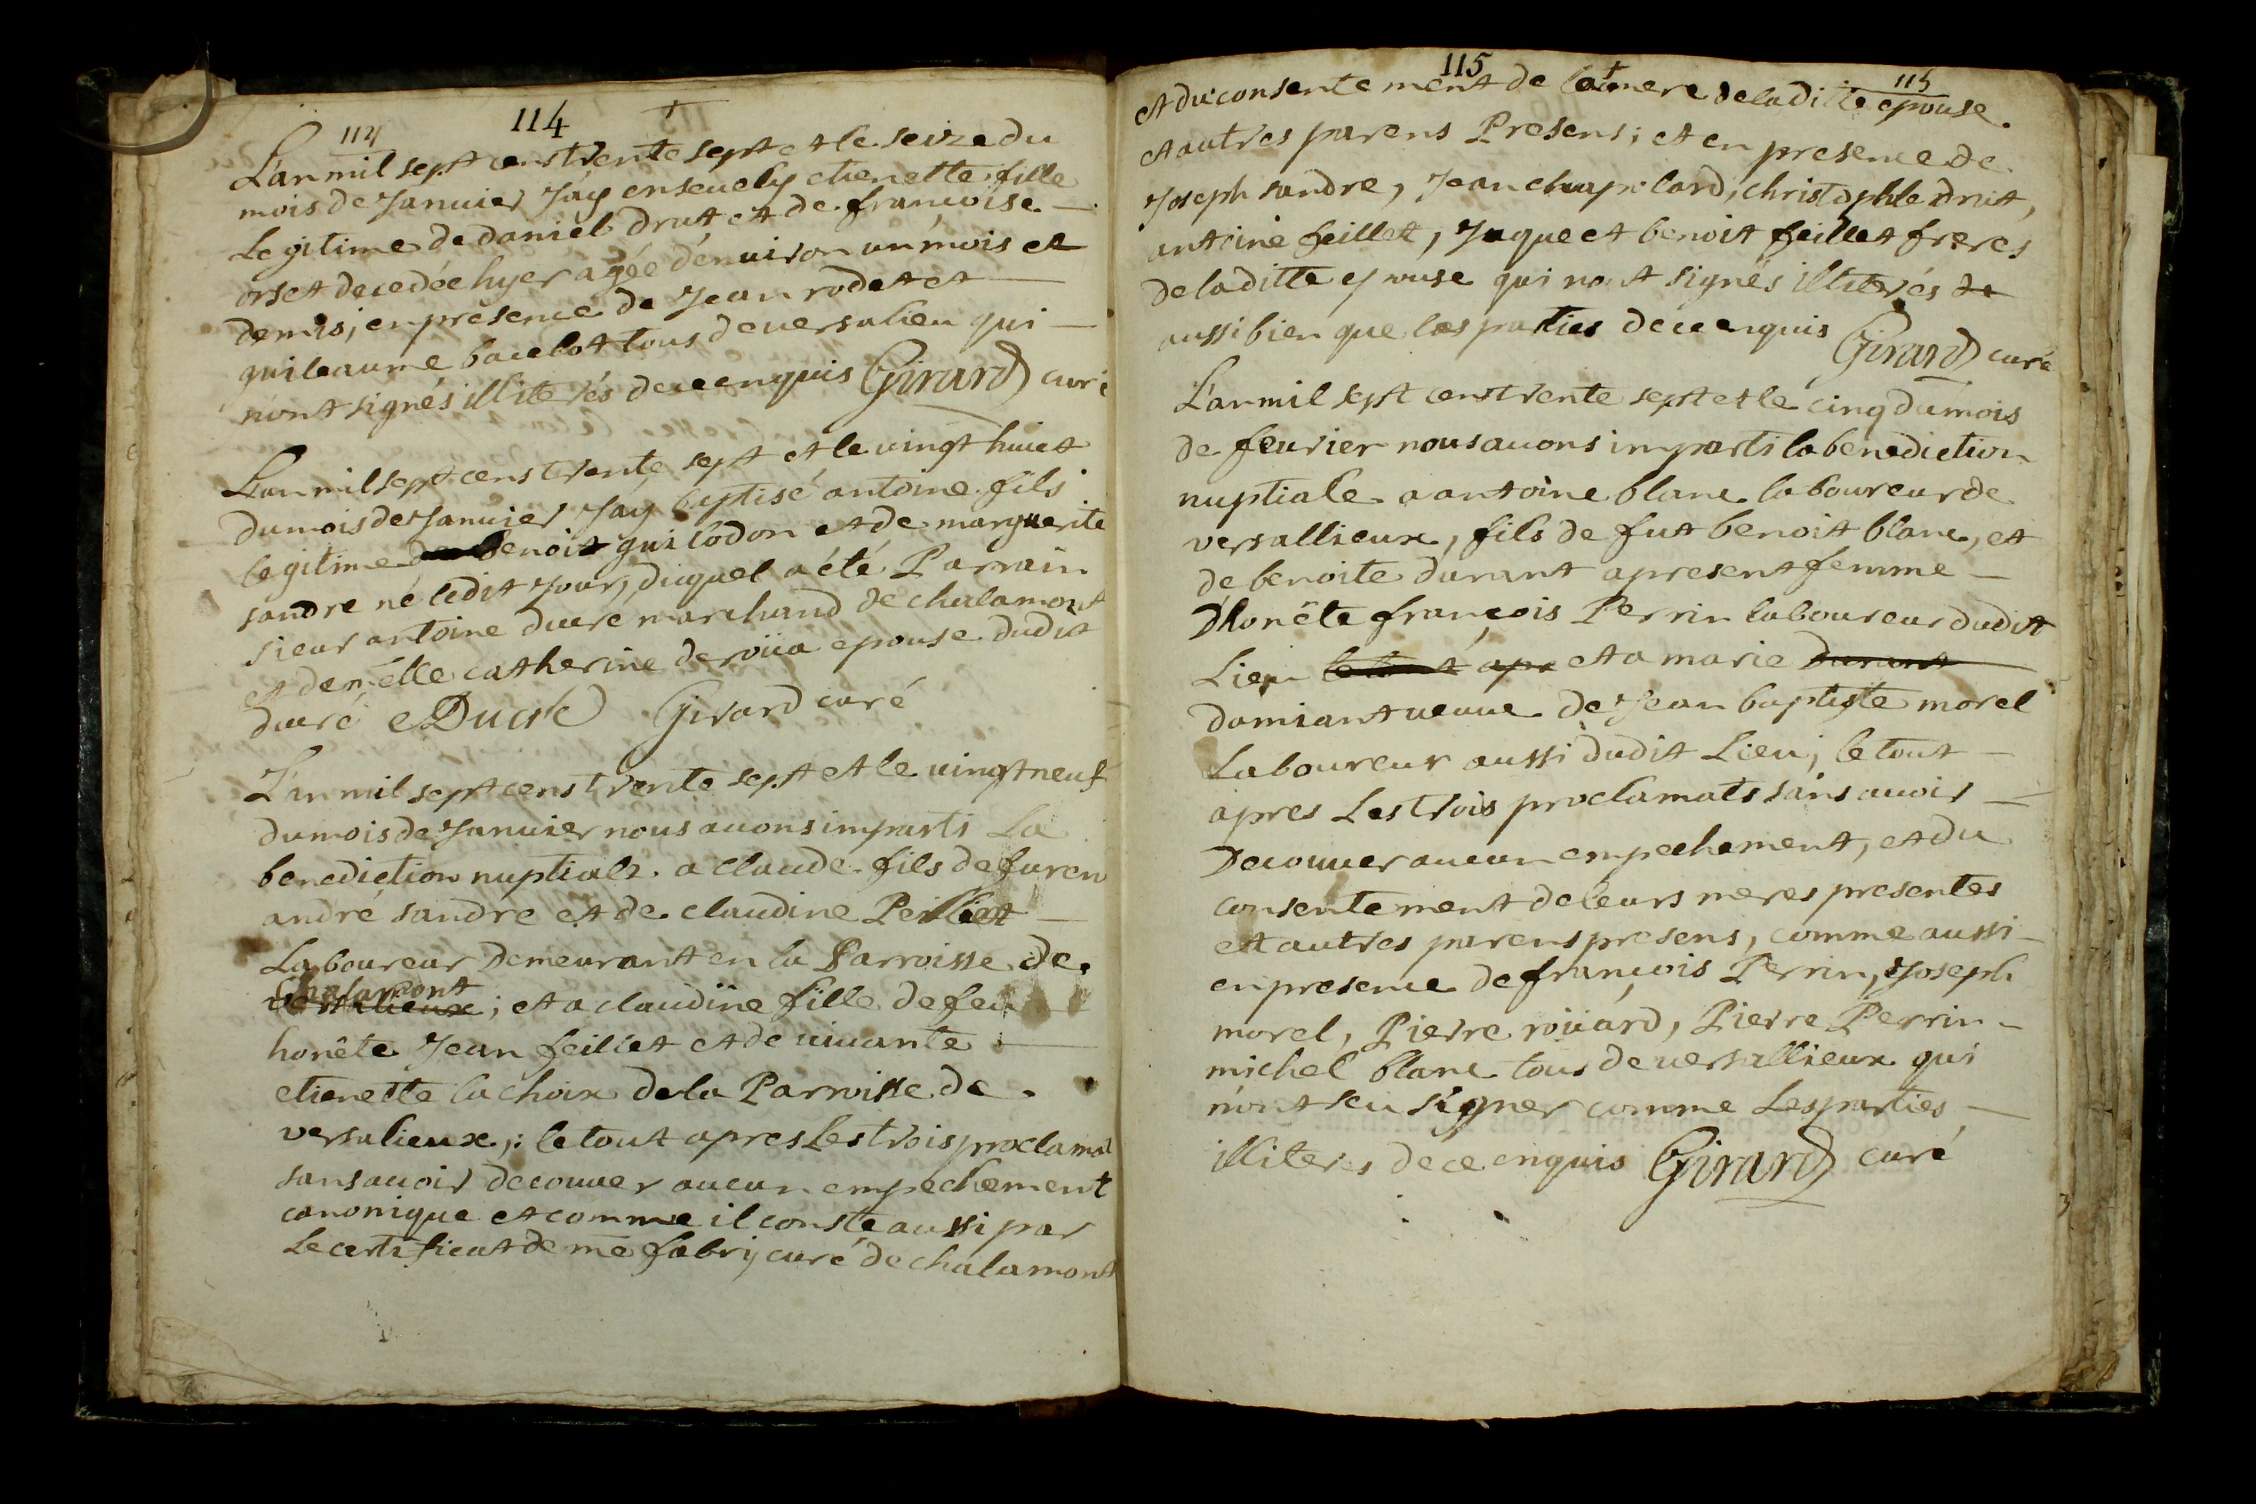 114
114
L'an mil sept cens trente sept et le seize du
mois de Janvier Jay enseuely etienette fille
Legitime de daniel drut et de françoise
orset decedée hyer agée d'enuiron un mois et
demis; en presence de Jean rodet et
guileaume bacelot tous de versalieu qui
n'ont signés illiterés de ce enquis Girard curé
L'an mil sept cens trente sept et le uingt huict
du mois de Januier Jay baptisé antoine fils
legitime de benoit guilodon et de marguerite
sandre né ledit Jour, duquel a été Parrain
sieur antoine ducre marchand de chalamont
et demelle catherine de roüa epouse dudit
ducré Ducre Girard curé
L'an mil sept cens trente sept et le uingt neuf
du mois de Januier nous auons imparti La
benediction nuptiale a claude fils de
andré sandre et de claudine Peilliet
Laboureur Demeurant en la Parroisse de
Chalamont
versalieux; et a claudine fille de feu
honête Jean feillet et de uiuante
etienette la choix de la Parroisse de
versalieux; le tout apres Les trois proclamat
sans auoir decouuer aucun empechement
canonique et comme il conste aussi par
Le certificat de me fabry curé de chalamont
115
115
et du consentement de la mere de laditte epouse
et autres parens Presens; et en presence de
Joseph sandre, Jean chapolard, christophle drut,
antoine feillet, Jaque et benoit feillet freres
de laditte epouse qui nont signés illiterés de
aussi bien que les parties de ce enquis Girard curé
L'an mil sept cens trente sept et le cinq du mois
de feurier nous auons imparti la benediction
nuptiale a antoine blanc laboureur de
versallieux, fils de fut benoit blanc, et
de benoite durant apresent femme
D'honête françois Perrin laboureur dudit
Lieu le tout apr et a marie durant
damiant ueuue de Jean baptiste morel
Laboureur aussi dudit Lieu; le tout
apres Les trois proclamats sans auoir
Decouuer aucun empechement, et du
consentement de leurs meres presentes
et autres parens presens, comme aussi
en presence de françois Perrin, Joseph
morel, Pierre roüard, Pierre Perrin
michel blanc tous de uersallieux qui
n'ont sceu signer comme Les parties
illiterés de ce enquis Girard curé